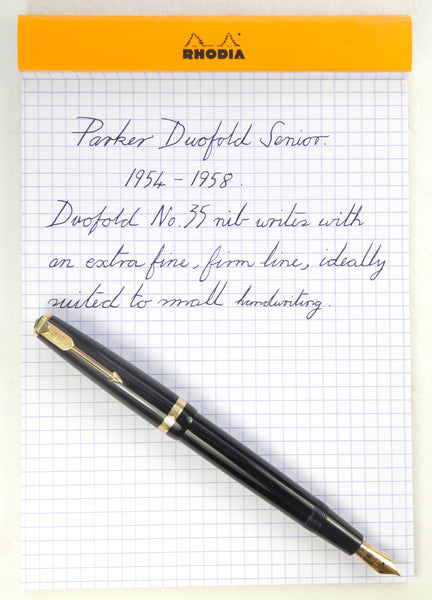 RHODIA
Parker Duofold Senior.
1954 - 1958.
Duofold No. 35 nib writes with
an extra fine, firm line, ideally
suited to small handwriting.